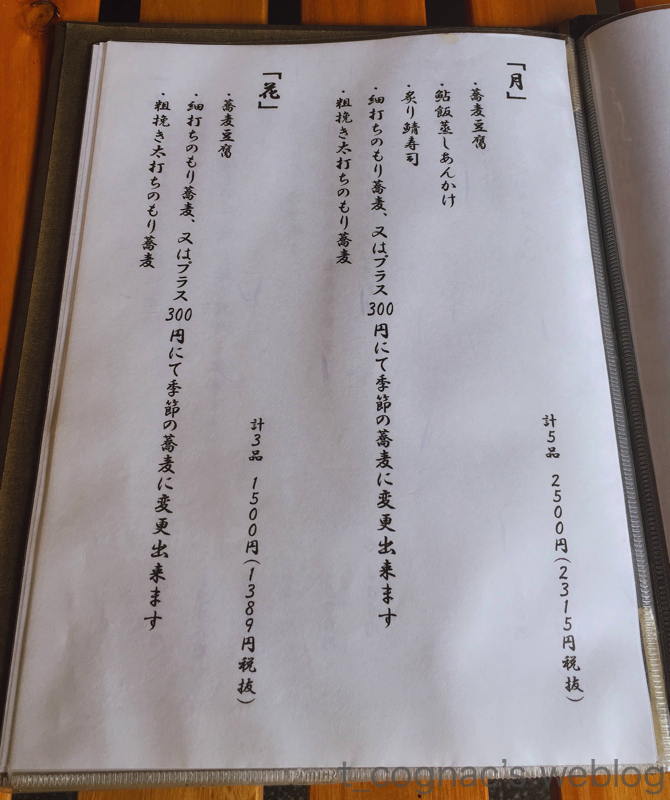 「月」
・蕎麦豆腐
・鮎飯蒸しあんかけ
・炙り鯖寿司
・細打ちのもり蕎麦、又はプラス300円にて季節の蕎麦に変更出来ます
・粗挽き太打ちのもり蕎麦
計5品 2500円(2315円税抜)
「花」
・蕎麦豆腐
・細打ちのもり蕎麦、又はプラス300円にて季節の蕎麦に変更出来ます
・粗挽き太打ちのもり蕎麦
計3品 1500円(1389円税抜)
t_cognac's weblog